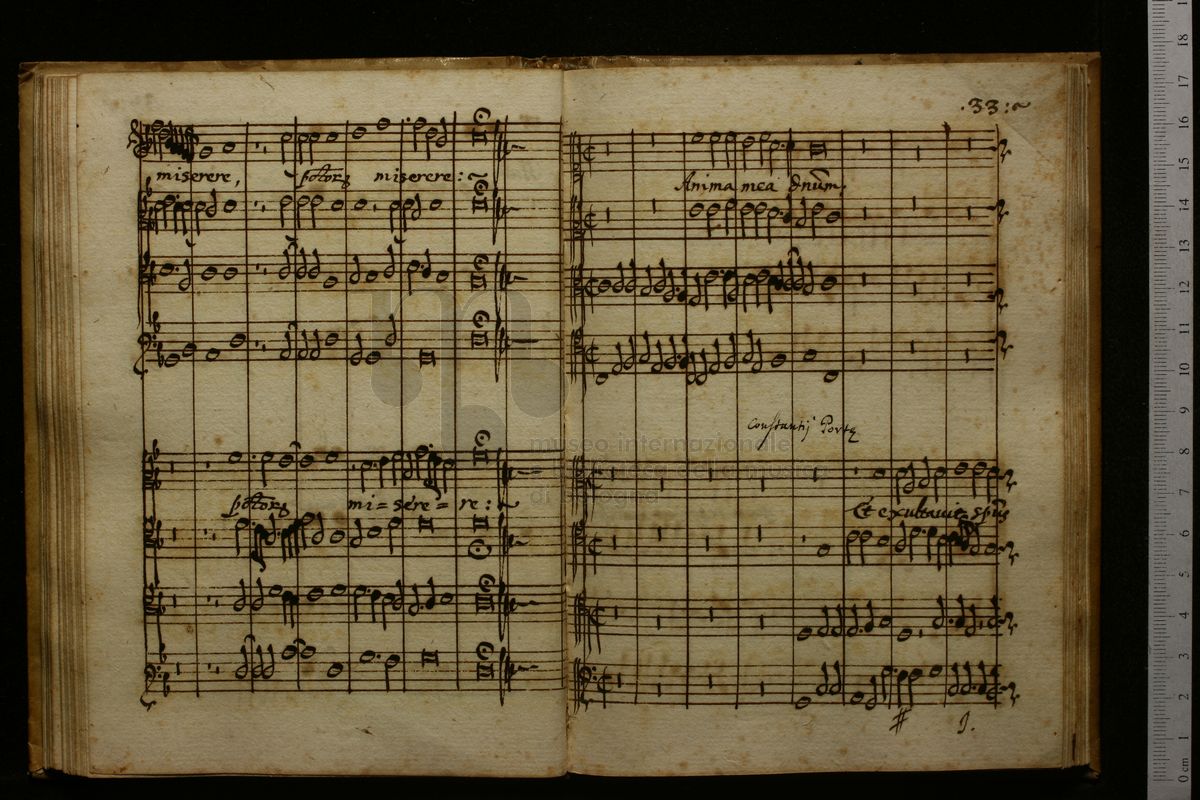 miserere, miserere:
mi=sere=re:
.33:~
Anima mea dnūm.
Constantij Portę
Et exultavit spūs
museo internazionale
e biblioteca della musica
di bologna
0 cm 1 2 3 4 5 6 7 8 9 10 11 12 13 14 15 16 17 18